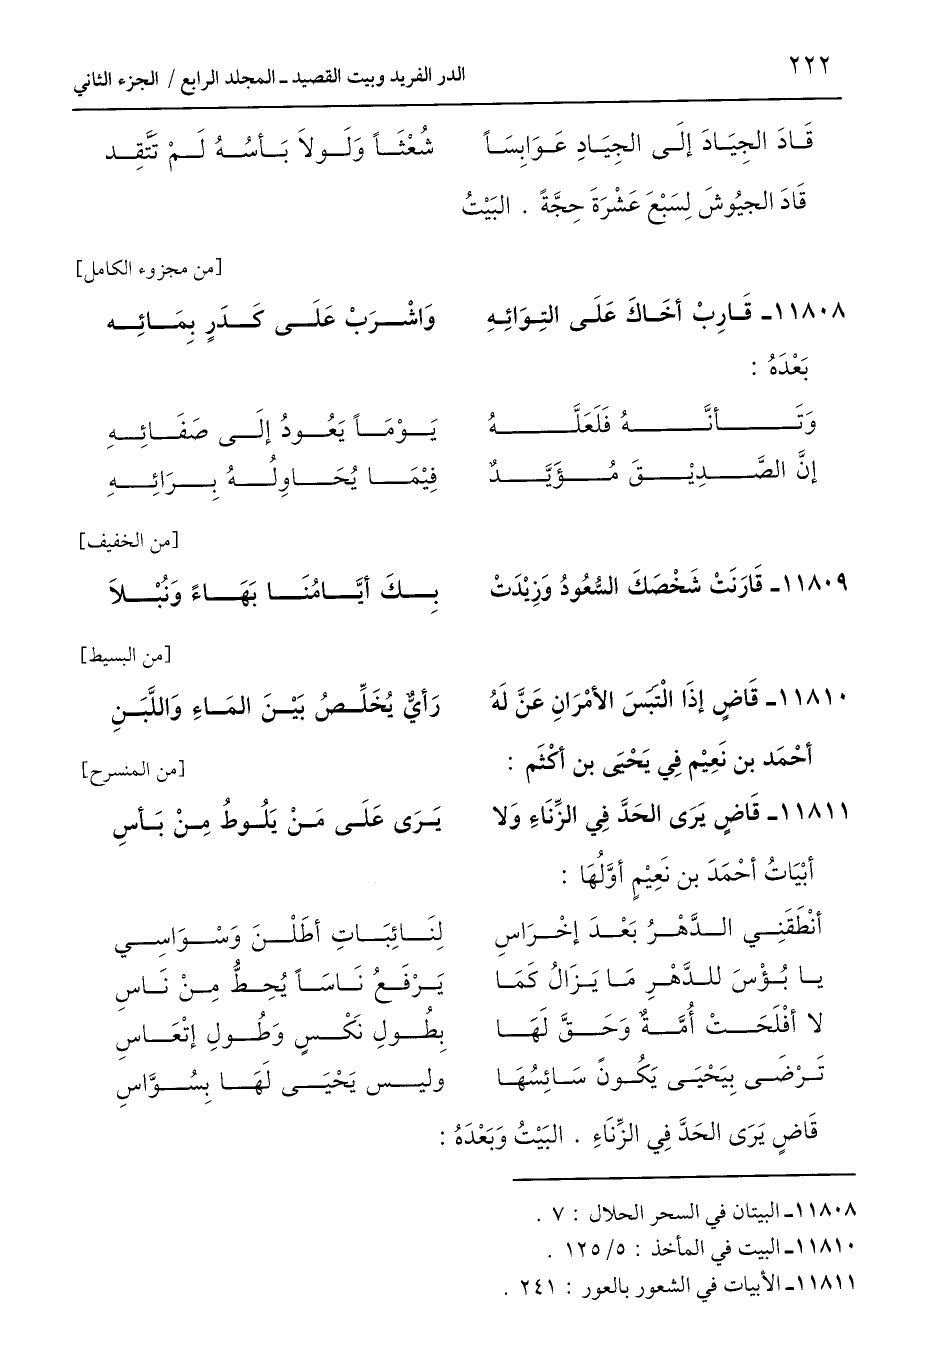 ٢٢٢
الدر الفريد وبيت القصيد ـ المجلد الرابع / الجزء الثاني
قَادَ الجِيَادَ إلَى الجِيَادِ عَوَابِسَاً شُعْثَاً وَلَولاَ بَأسُهُ لَمْ تَنْقَدِ
قَادَ الجيُوشَ لِسَبْعَ عَشْرَةَ حِجَّةً . البَيْتُ
[من مجزوء الكامل]
١١٨٠٨ـ قَارِبْ أخَاكَ عَلَى التِوَائِهِ وَاشْرَبْ عَلَى كَدَرٍ بِمَائِهِ
بَعْدَهُ :
وَتَأنَّهُ فَلَعَلَّهُ يَوْمَاً يَعُودُ إلَى صَفَائِهِ
إنَّ الصَّدِيْقَ مُؤَيَّدٌ فِيْمَا يُحَاوِلُهُ بِرَائِهِ
[من الخفيف]
١١٨٠٩ـ قَارَنَتْ شَخْصَكَ السُّعُودُ وَزِيْدَتْ بِكَ أيَّامُنَا بَهَاءً وَنُبْلاَ
[من البسيط]
١١٨١٠ـ قَاضٍ إذَا الْتَبَسَ الأمْرَانِ عَنَّ لَهُ رَأيٌ يُخَلِّصُ بَيْنَ المَاءِ وَاللَّبَنِ
أحْمَد بن نَعِيْم فِي يَحْيَى بن أكْثَم :
[من المنسرح]
١١٨١١ـ قَاضٍ يَرَى الحَدَّ فِي الزِّنَاءِ وَلا يَرَى عَلَى مَنْ يَلُوطُ مِنْ بَأسِ
أبْيَاتُ أحْمَدَ بن نَعِيْمٍ أوَّلُهَا :
أنْطَقَنِي الدَّهْرُ بَعْدَ إخْرَاسِ لِنَائِبَاتِ أطَلْنَ وَسْوَاسِي
يا بُؤْسَ للدَّهْرِ مَا يَزَالُ كَمَا يَرْفَعُ نَاسَاً يُحِطُّ مِنْ نَاسِ
لا أفْلَحَتْ أُمَّةٌ وَحَقَّ لَهَا بِطُولِ نَكْسٍ وَطُولِ إتْعَاسِ
تَرْضَى بِيَحْيَى يَكُونُ سَائِسُهَا وليس يَحْيَى لَهَا بِسُوَّاسِ
قَاضٍ يَرَى الحَدَّ فِي الزِّنَاءِ . البَيْتُ وَبَعْدَهُ :
١١٨٠٨ـ البيتان في السحر الحلال : ٧ .
١١٨١٠ـ البيت في المأخذ : ١٢٥/٥ .
١١٨١١ـ الأبيات في الشعور بالعور : ٢٤١ .